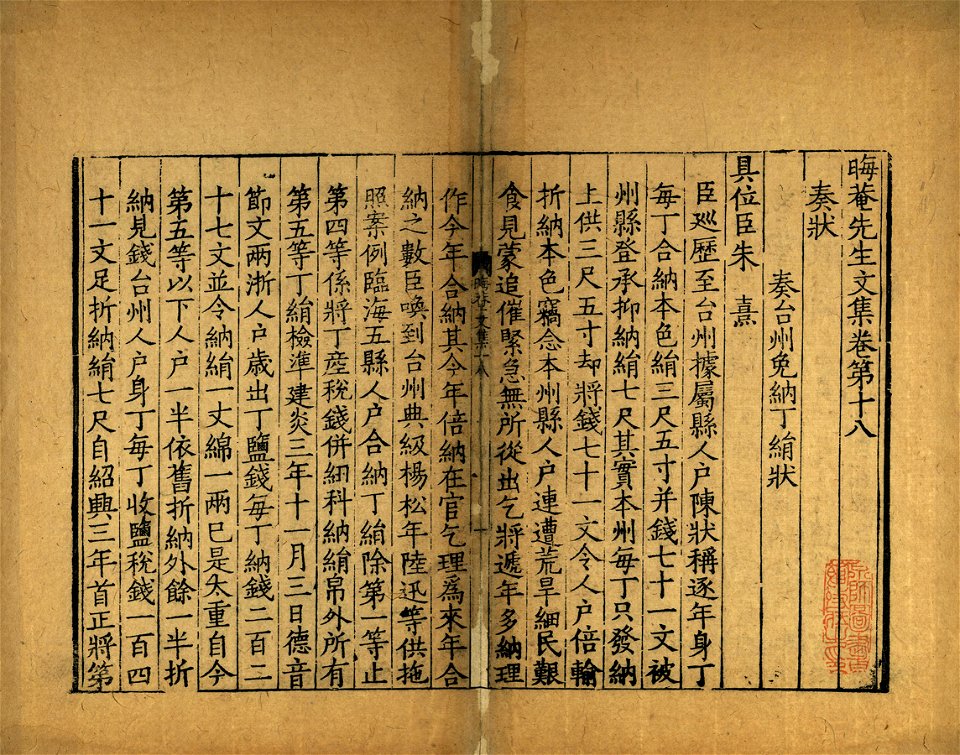 晦菴先生文集卷第十八
奏狀
奏台州免納丁絹狀
具位臣朱熹
臣廵歷至台州據屬縣人户陳狀稱逐年身丁
每丁合納本色絹三尺五寸并錢七十一文被
州縣登承抑納絹七尺其實本州每丁只發納
上供三尺五寸却將錢七十一文令人户倍輸
折納本色竊念本州縣人户連遭荒旱細民艱
食見蒙追催緊急無所從出乞將遞年多納理
晦菴文集十八
一
作今年合納其今年倍納在官乞理爲來年合
納之數臣喚到台州典級楊松年陸迅等供拖
照案例臨海五縣人户合納丁絹除第一等止
第四等係將丁産稅錢併紐科納絹帛外所有
第五等丁絹檢準建炎三年十一月三日德音
節文兩淅人户歲出丁鹽錢每丁納錢二百二
十七文並令納絹一丈綿一兩已是太重自今
第五等以下人户一半依舊折納外餘一半折
納見錢台州人户身丁每丁收鹽稅錢一百四
十一文足折納絹七尺自紹興三年首正將第